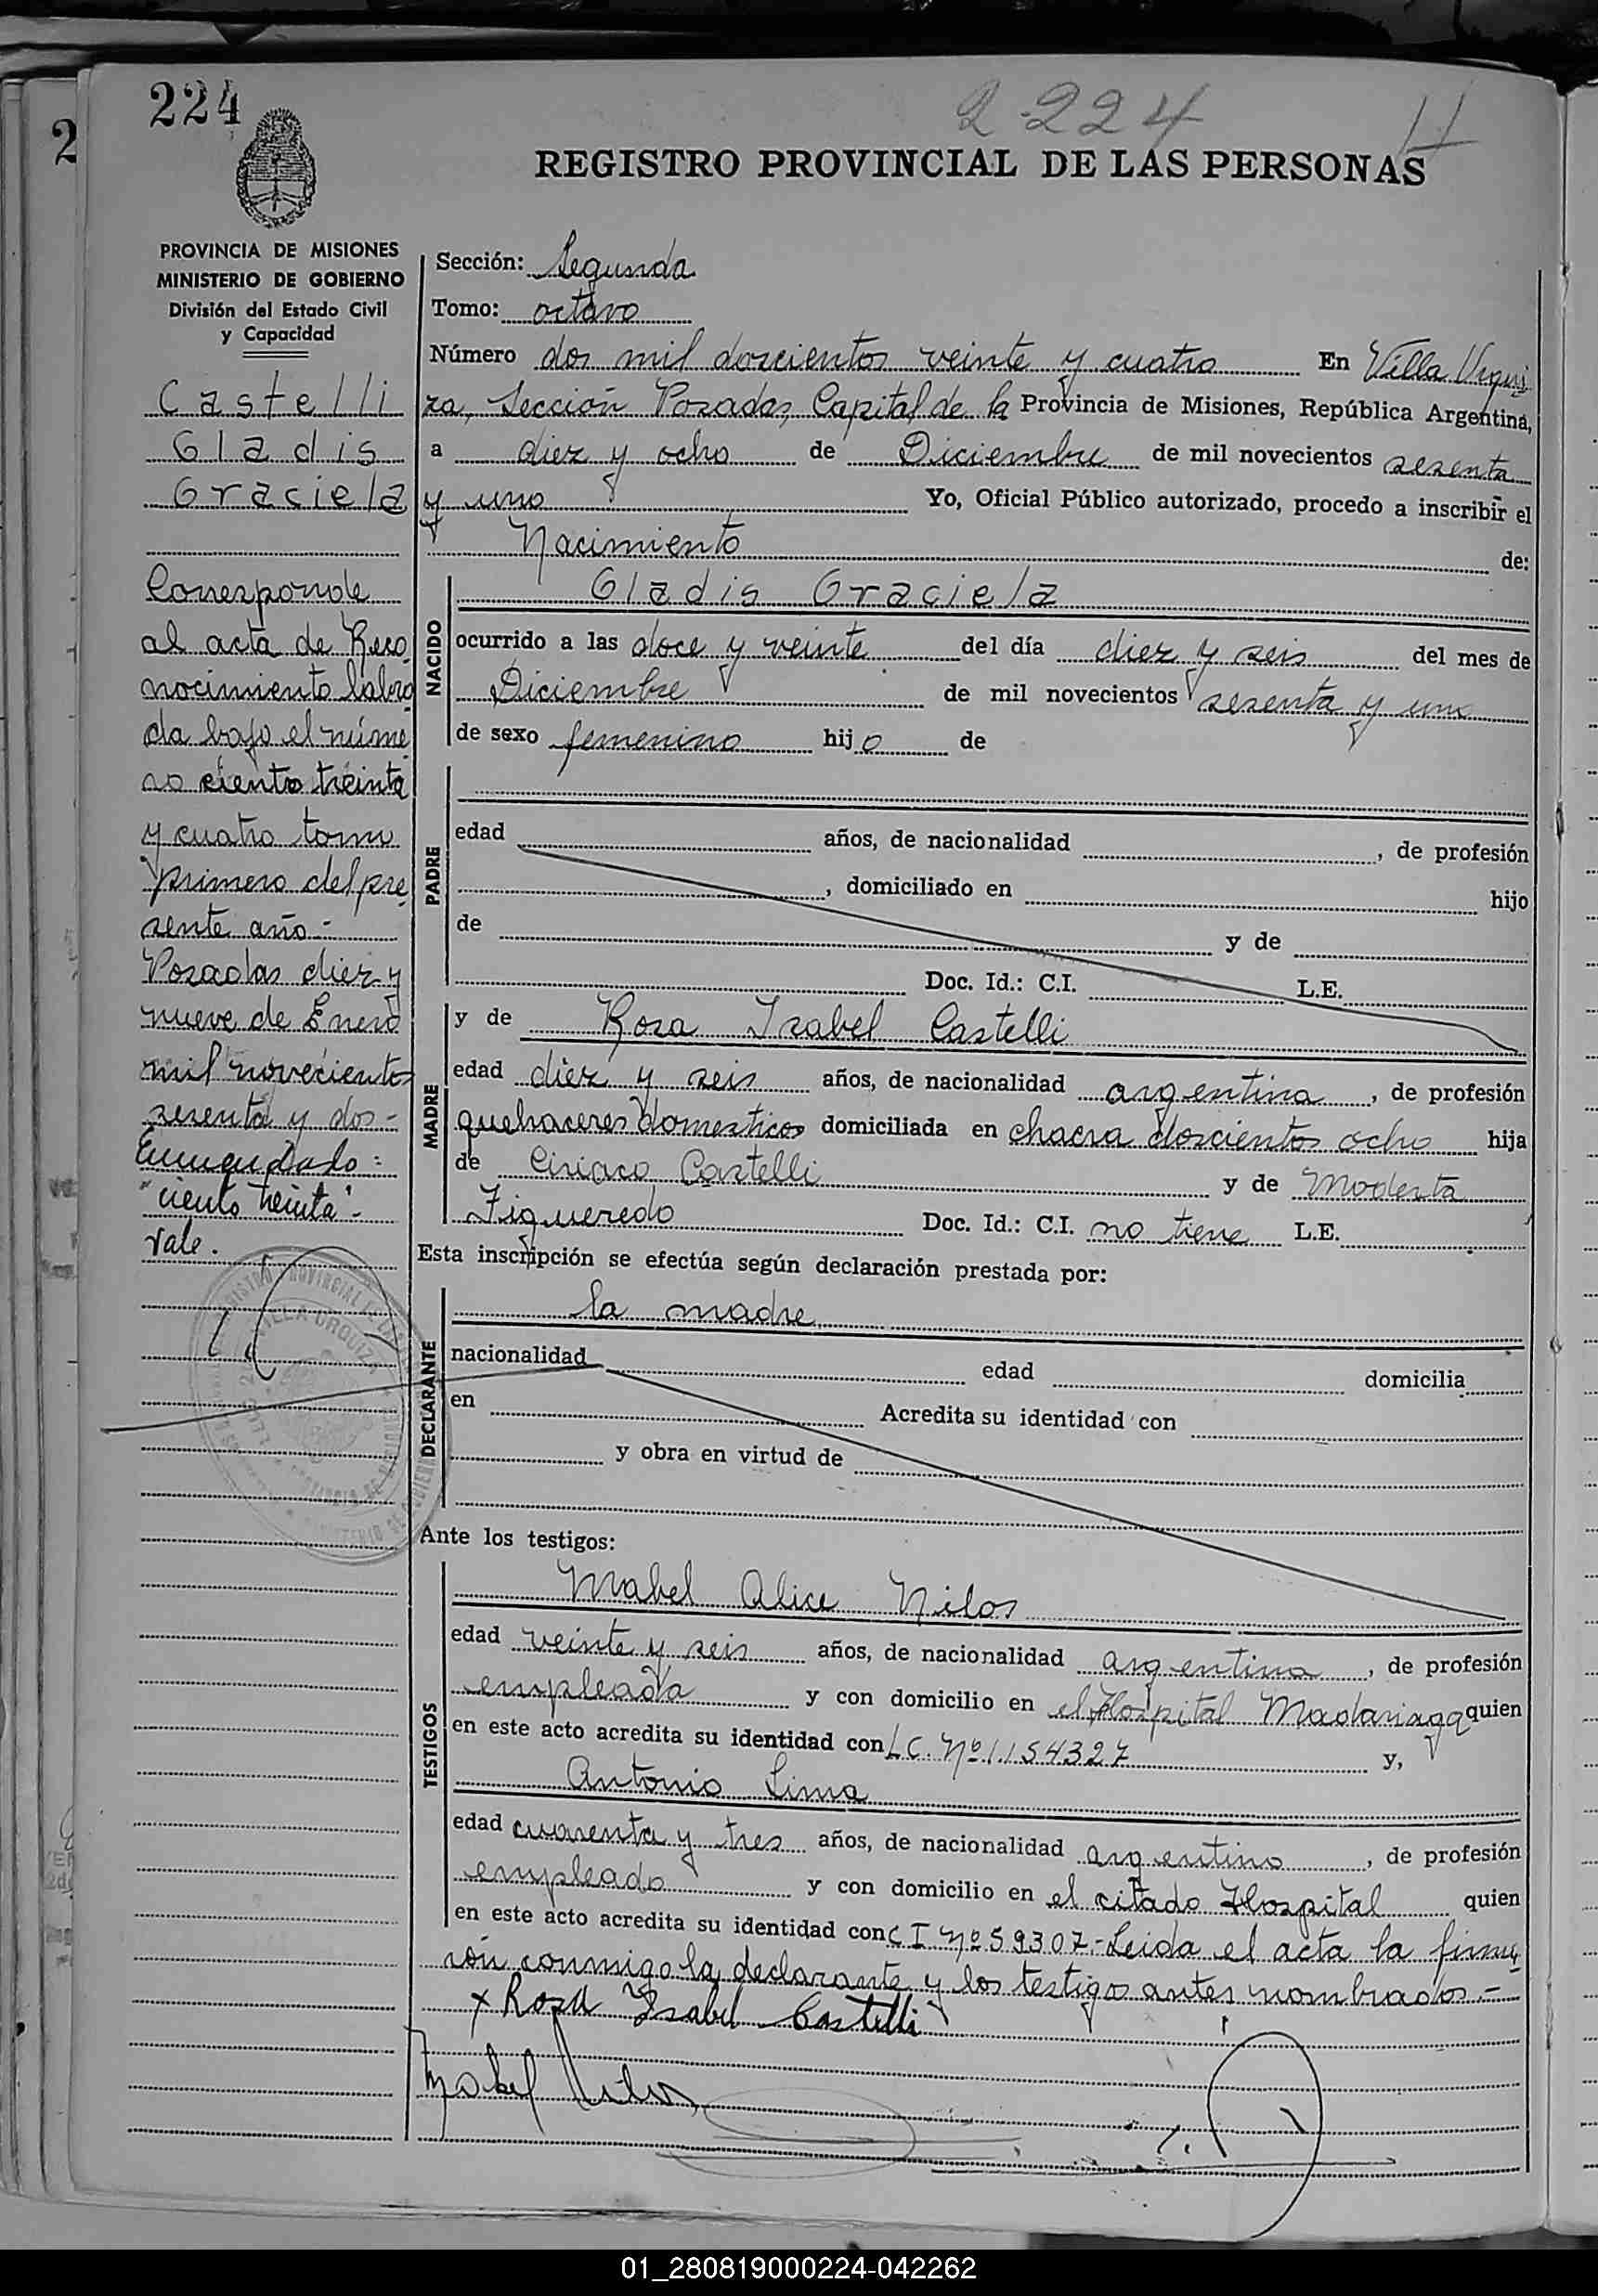 224
2-224
REGISTRO PROVINCIAL DE LAS PERSONAS
PROVINCIA DE MISIONES
MINISTERIO DE GOBIERNO
División del Estado Civil
y Capacidad
Castelli
Gladis
Graciela
Corresponde
al acta de Reco
nocimiento labra
da bajo el núme
ro ciento treinta
y cuatro tomo
primero del pre
sente año.-
Posadas diez y
nueve de Enero
mil novecientos
sesenta y dos-
Enmendado:
"ciento treinta".
Vale.
Sección: Segunda
Tomo: octavo
Número dos mil doscientos veinte y cuatro En Villa Urqui
za, Sección Posadas, Capital de la Provincia de Misiones, República Argentina,
a diez y ocho de Diciembre de mil novecientos sesenta
y uno Yo, Oficial Público autorizado, procedo a inscribir el
Nacimiento de:
NACIDO
Gladis Graciela
ocurrido a las doce y veinte del día diez y seis del mes de
Diciembre de mil novecientos sesenta y uno
de sexo femenino hijo de
PADRE
edad años, de nacionalidad , de profesión
, domiciliado en hijo
de y de
Doc. Id.: C.I. L.E.
MADRE
y de Rosa Isabel Castelli
edad diez y seis años, de nacionalidad argentina, de profesión
quehaceres domesticos domiciliada en chacra doscientos ocho hija
de Ciriaco Castelli y de Modesta
Figueredo Doc. Id.: C.I. no tiene L.E.
Esta inscripción se efectúa según declaración prestada por:
DECLARANTE
la madre
nacionalidad edad domicilia
en Acredita su identidad con
y obra en virtud de
Ante los testigos:
TESTIGOS
Mabel Alice Nilos
edad veinte y seis años, de nacionalidad argentina, de profesión
empleada y con domicilio en el Hospital Madariaga quien
en este acto acredita su identidad con LC. Nº 1.154327 y,
Antonio Lima
edad cuarenta y tres años, de nacionalidad argentino, de profesión
empleado y con domicilio en el citado Hospital quien
en este acto acredita su identidad con C I Nº 59307.- Leida el acta la firma
rón conmigo la declarante y los testigos antes nombrados.-
x Rosa Isabel Castelli
Mabel Nilos
01_280819000224-042262